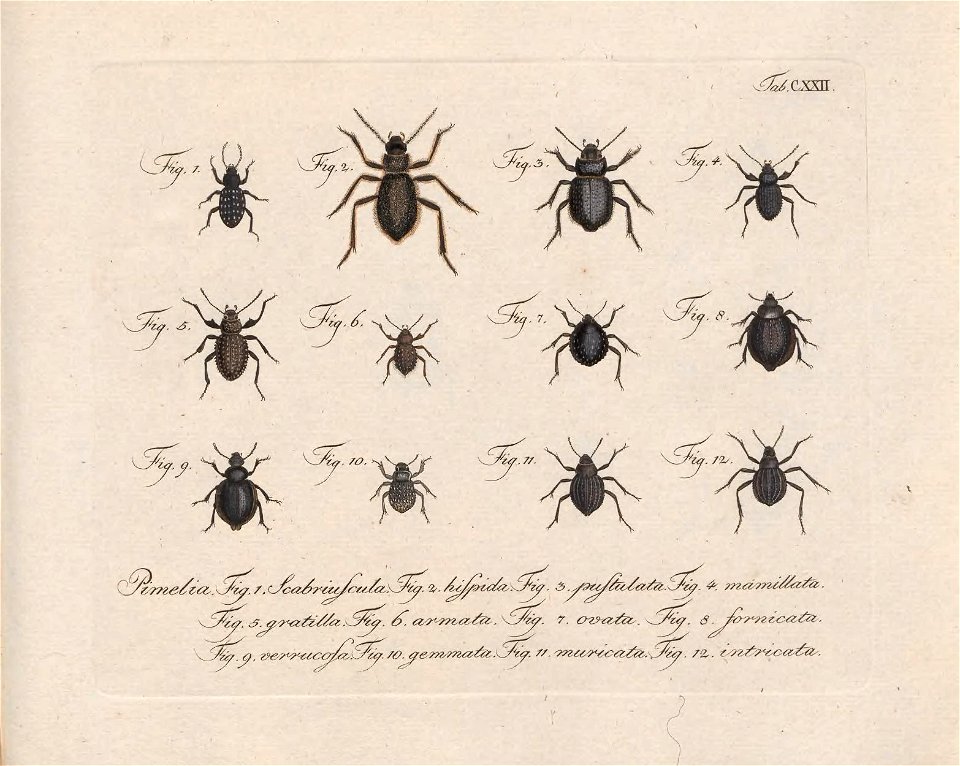 Tab. CXXII.
Fig. 1. Fig. 2. Fig. 3. Fig. 4.
Fig. 5. Fig. 6. Fig. 7. Fig. 8.
Fig. 9. Fig. 10. Fig. 11. Fig. 12.
Pimelia. Fig. 1. Scabriuſcula. Fig. 2. hiſpida. Fig. 3. puſtulata. Fig. 4. mamillata.
Fig. 5. gratilla. Fig. 6. armata. Fig. 7. ovata. Fig. 8. fornicata.
Fig. 9. verrucoſa. Fig. 10. gemmata. Fig. 11. muricata. Fig. 12. intricata.